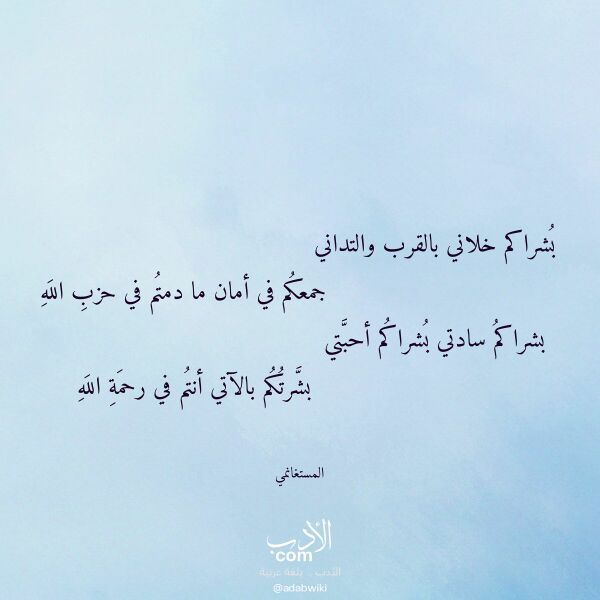 بُشراكم خلاني بالقرب والتداني
جمعكُم في أمان ما دمتُم في حزبِ اللَهِ
بشراكمُ سادتي بُشراكُم أحبَّتي
بشَّرتُكُم بالآتي أنتُم في رحمَةِ اللَهِ
المستغانمي
الأدب
com
الأدب .. بلغة عربية
@adabwiki